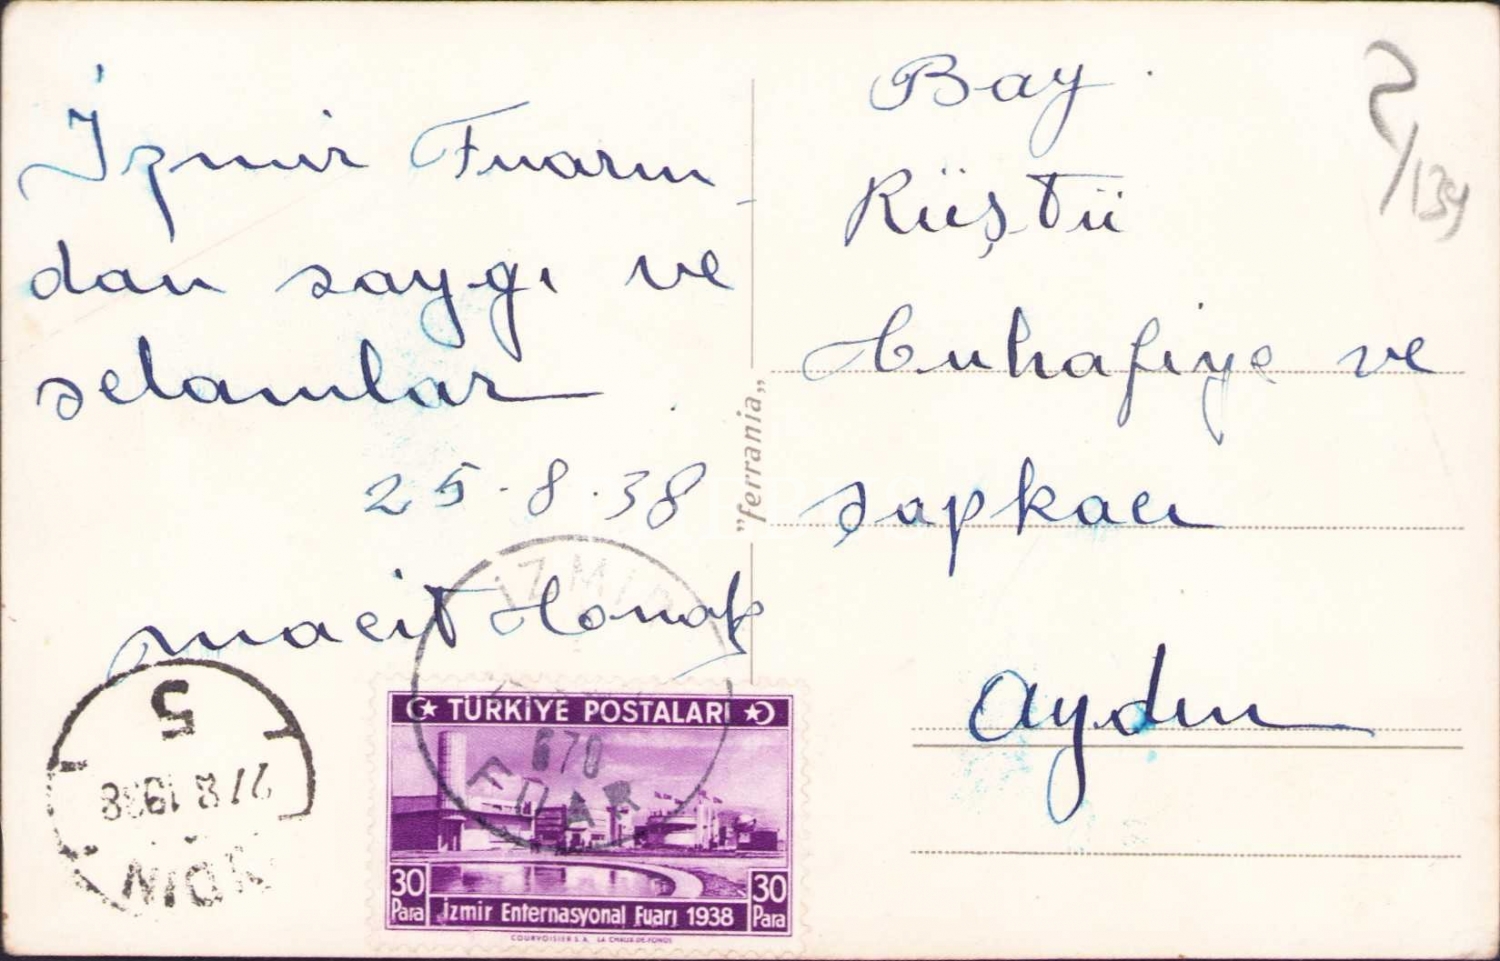 İzmir Fuarın
dan saygı ve
selamlar
25.8.38
Macit
Bay
Rüştü
tuhafiye ve
şapkacı
Aydın
"ferrania"
İZMİR
670
FUAR
TÜRKİYE POSTALARI
30 Para
30 Para
İzmir Enternasyonal Fuarı 1938
COURVOISIER S.A. LA CHAUX-DE-FONDS
5
27 8 1938
/139